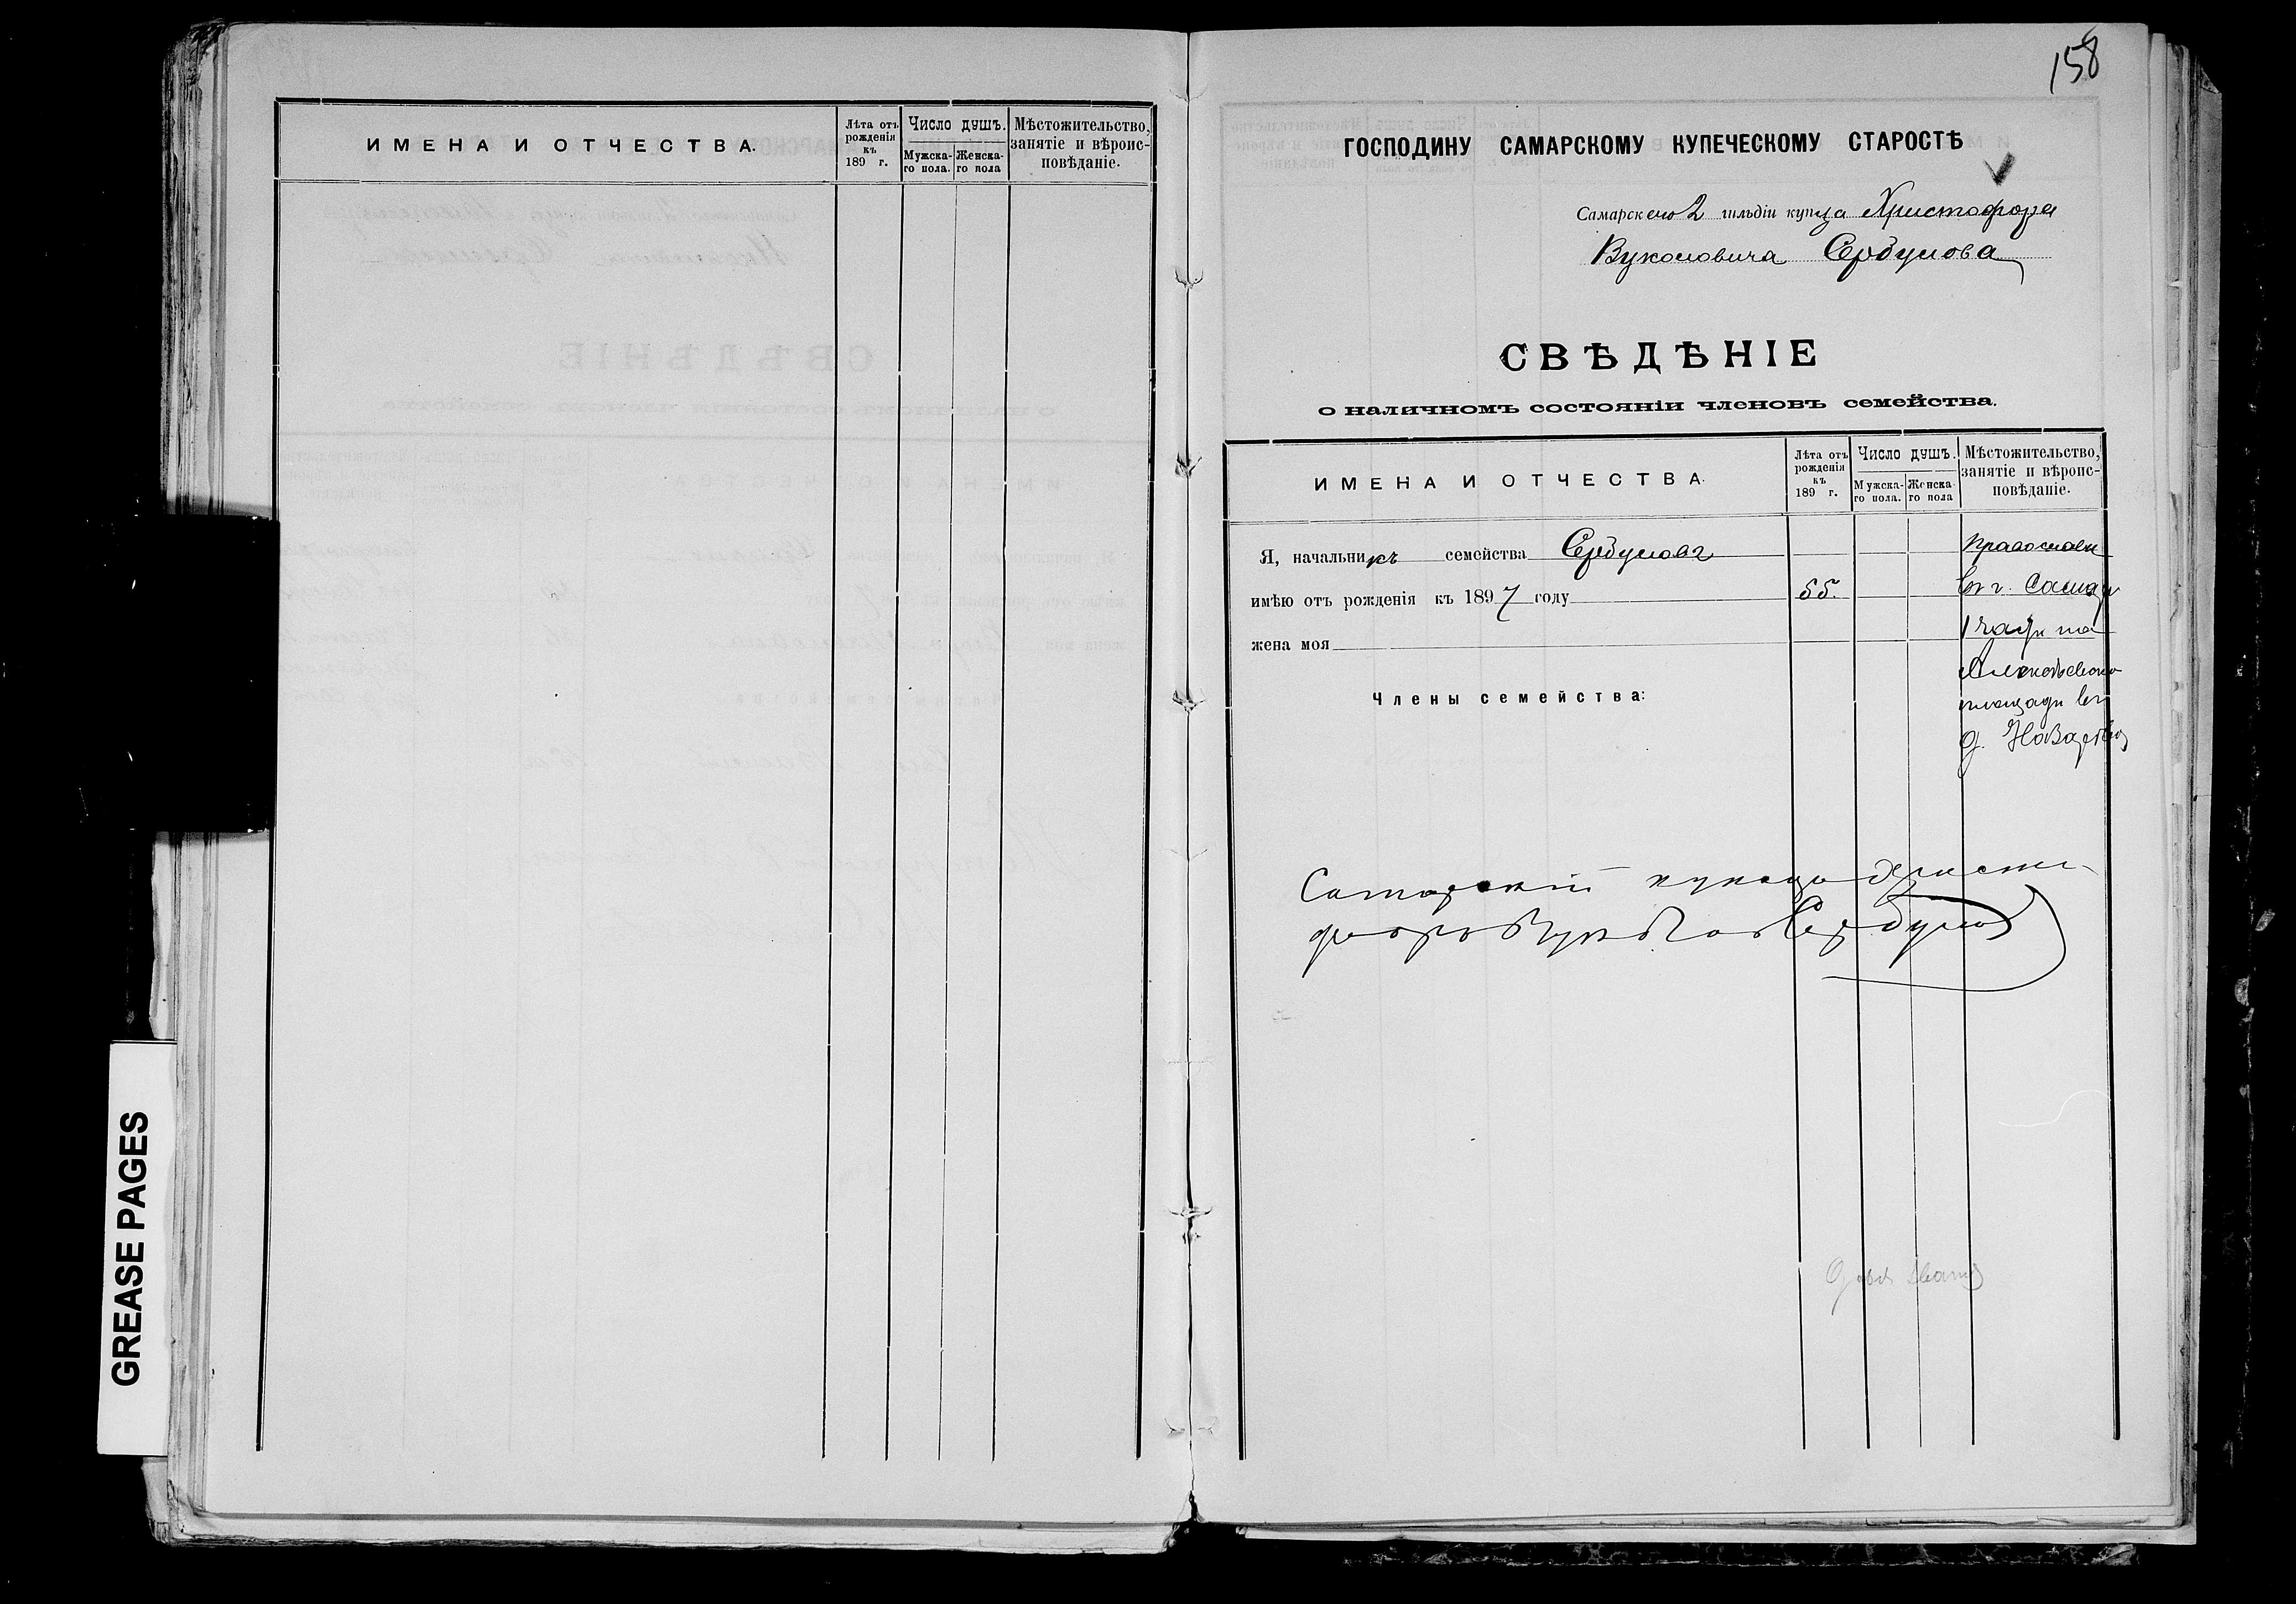 ИМЕНА И ОТЧЕСТВА.
Лѣта отъ рожденія къ 189 г.
Число душъ.
Мужска-го пола.
Женска-го пола
Мѣстожительство, занятіе и вѣроис-повѣданіе.
GREASE PAGES
158
ГОСПОДИНУ САМАРСКОМУ КУПЕЧЕСКОМУ СТАРОСТѢ
Самарскаго 2 гильдіи купца Христофора
Вуколовича Сердунова
СВѢДѢНІЕ
о наличномъ состояніи членовъ семейства.
ИМЕНА И ОТЧЕСТВА.
Лѣта отъ рожденія къ 189 г.
Число душъ.
Мужска-го пола.
Женска-го пола
Мѣстожительство, занятіе и вѣроис-повѣданіе.
Я, начальникъ семейства
имѣю отъ рожденія къ 1897 году 55.
жена моя
Члены семейства:
православн
въ г. Самар
1 части на
Алексѣевской
площади въ
д.
Самарскій купецъ Христо-
форъ